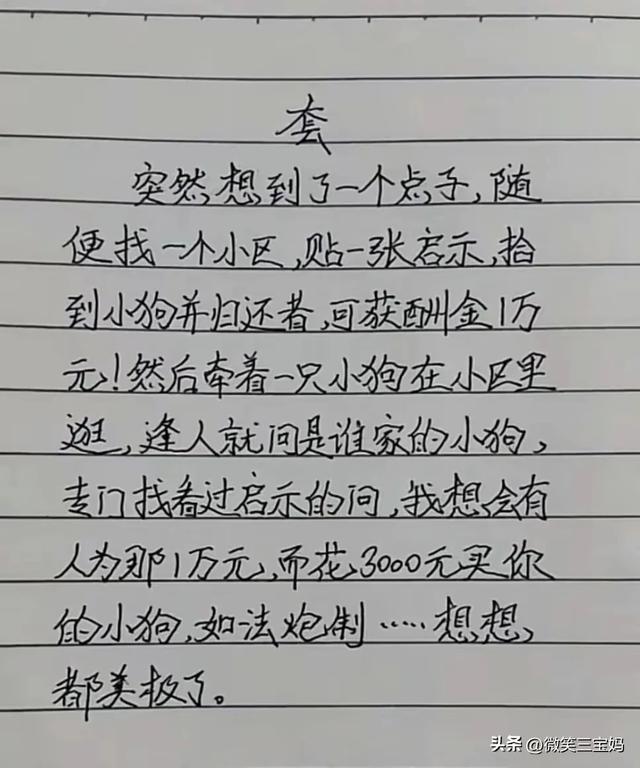 套
突然想到了一个点子,随
便找一个小区,贴一张启示,拾
到小狗并归还者,可获酬金1万
元!然后牵着一只小狗在小区里
逛,逢人就问是谁家的小狗,
专门找看过启示的问,我想会有
人为那1万元,而花3000元买你
的小狗,如法炮制……想想,
都美极了。
头条 @微笑三宝妈